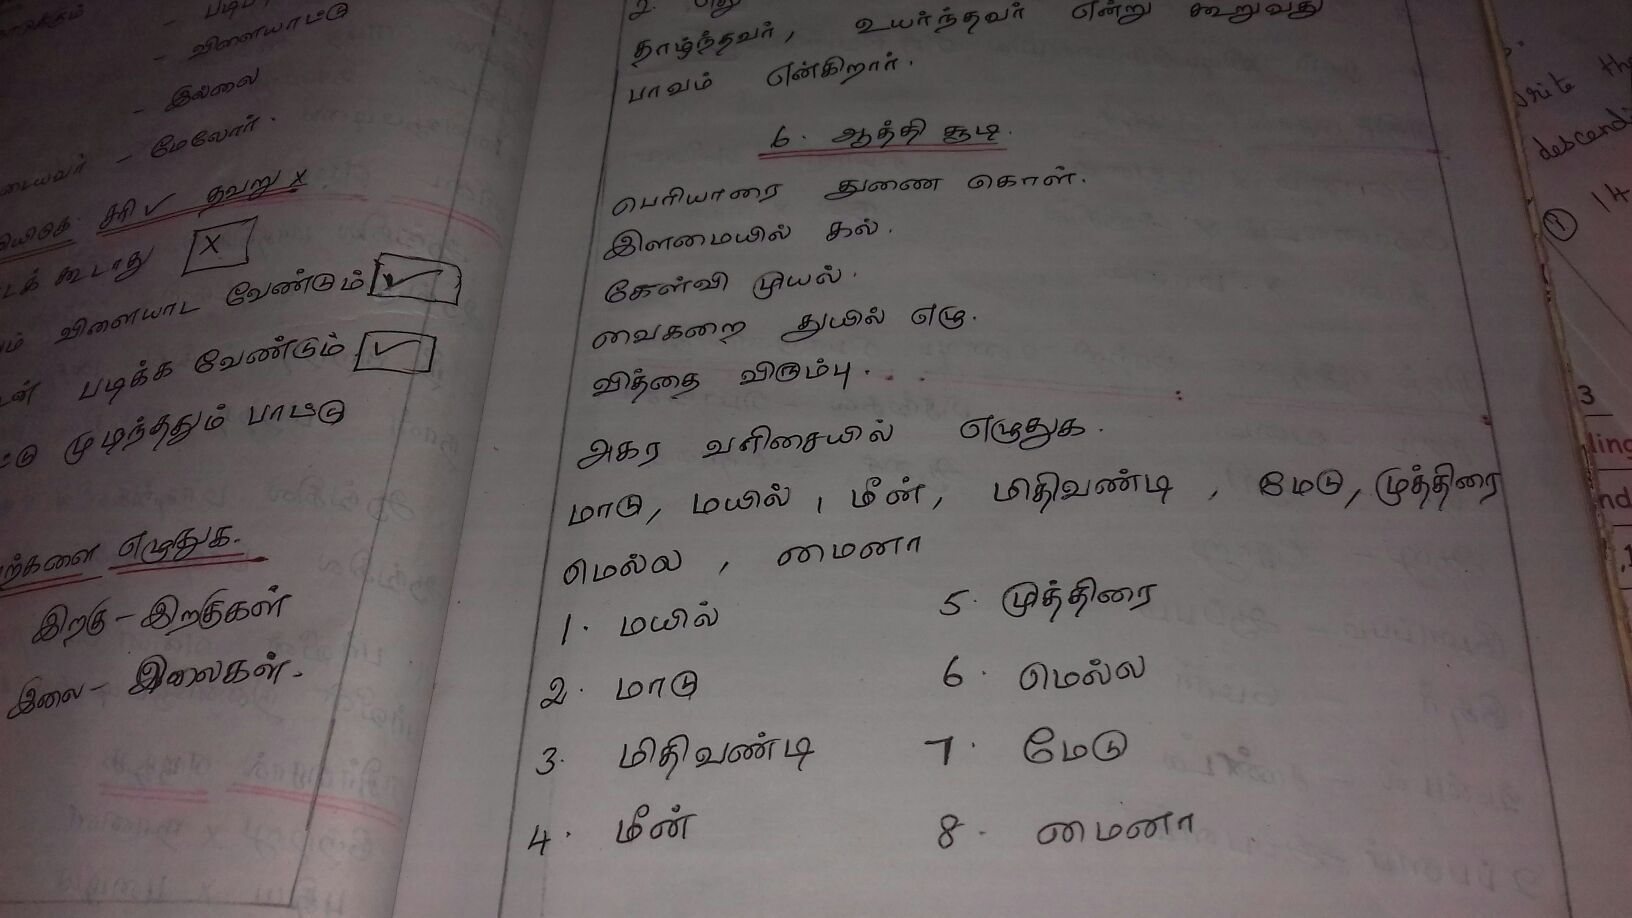 - விளையாட்டு
- இல்லை
- மேலோர்.
சரி ✓ தவறு x
கூடாது x
விளையாட வேண்டும் ✓
படிக்க வேண்டும் ✓
முடிந்ததும் பாட்டு
எழுதுக.
இறகு - இறகுகள்
இலை - இலைகள்.
தாழ்ந்தவர், உயர்ந்தவர் என்று கூறுவது
பாவம் என்கிறார்.
6. ஆத்தி சூடி.
பெரியாரை துணை கொள்.
இளமையில் கல்.
கேள்வி முயல்.
வைகறை துயில் எழு.
வித்தை விரும்பு.
அகர வரிசையில் எழுதுக.
மாடு, மயில், மீன், மிதிவண்டி, மேடு, முத்திரை
மெல்ல, மைனா
1. மயில்
2. மாடு
3. மிதிவண்டி
4. மீன்
5. முத்திரை
6. மெல்ல
7. மேடு
8. மைனா
14
3